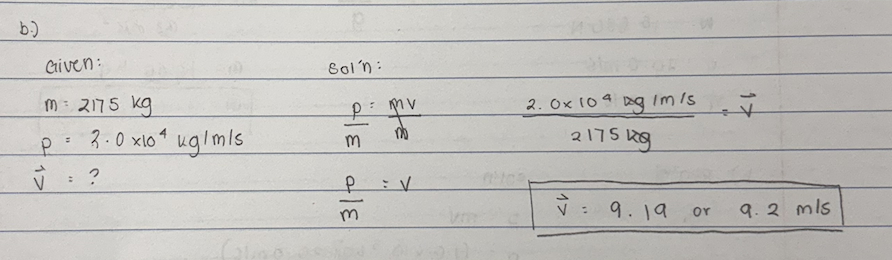 b.)
Given:
m = 2175 kg
p = 2.0 x10⁴ kg/m/s
v⃗ = ?
Sol'n:
p/m = mv/m
p/m = v
2.0 x 10⁴ kg/m/s / 2175 kg = v⃗
v⃗ = 9.19 or 9.2 m/s